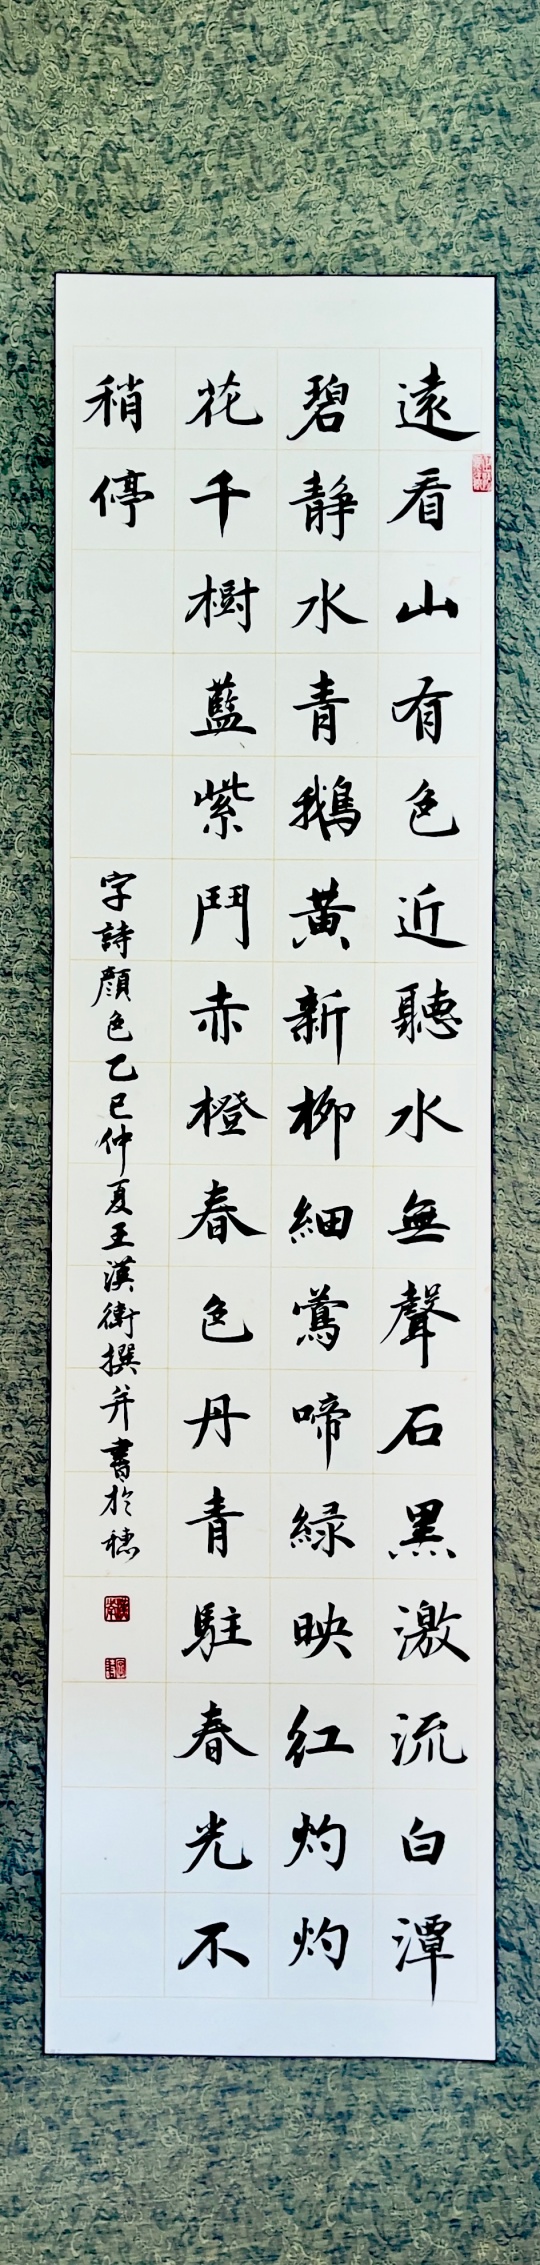 遠看山有色近聽水無聲石黑激流白潭
碧静水青鵝黃新柳細鶯啼綠映紅灼灼
花千樹藍紫鬥赤橙春色丹青駐春光不
稍停
字詩顔色乙巳仲夏王漢衛撰并書於穗